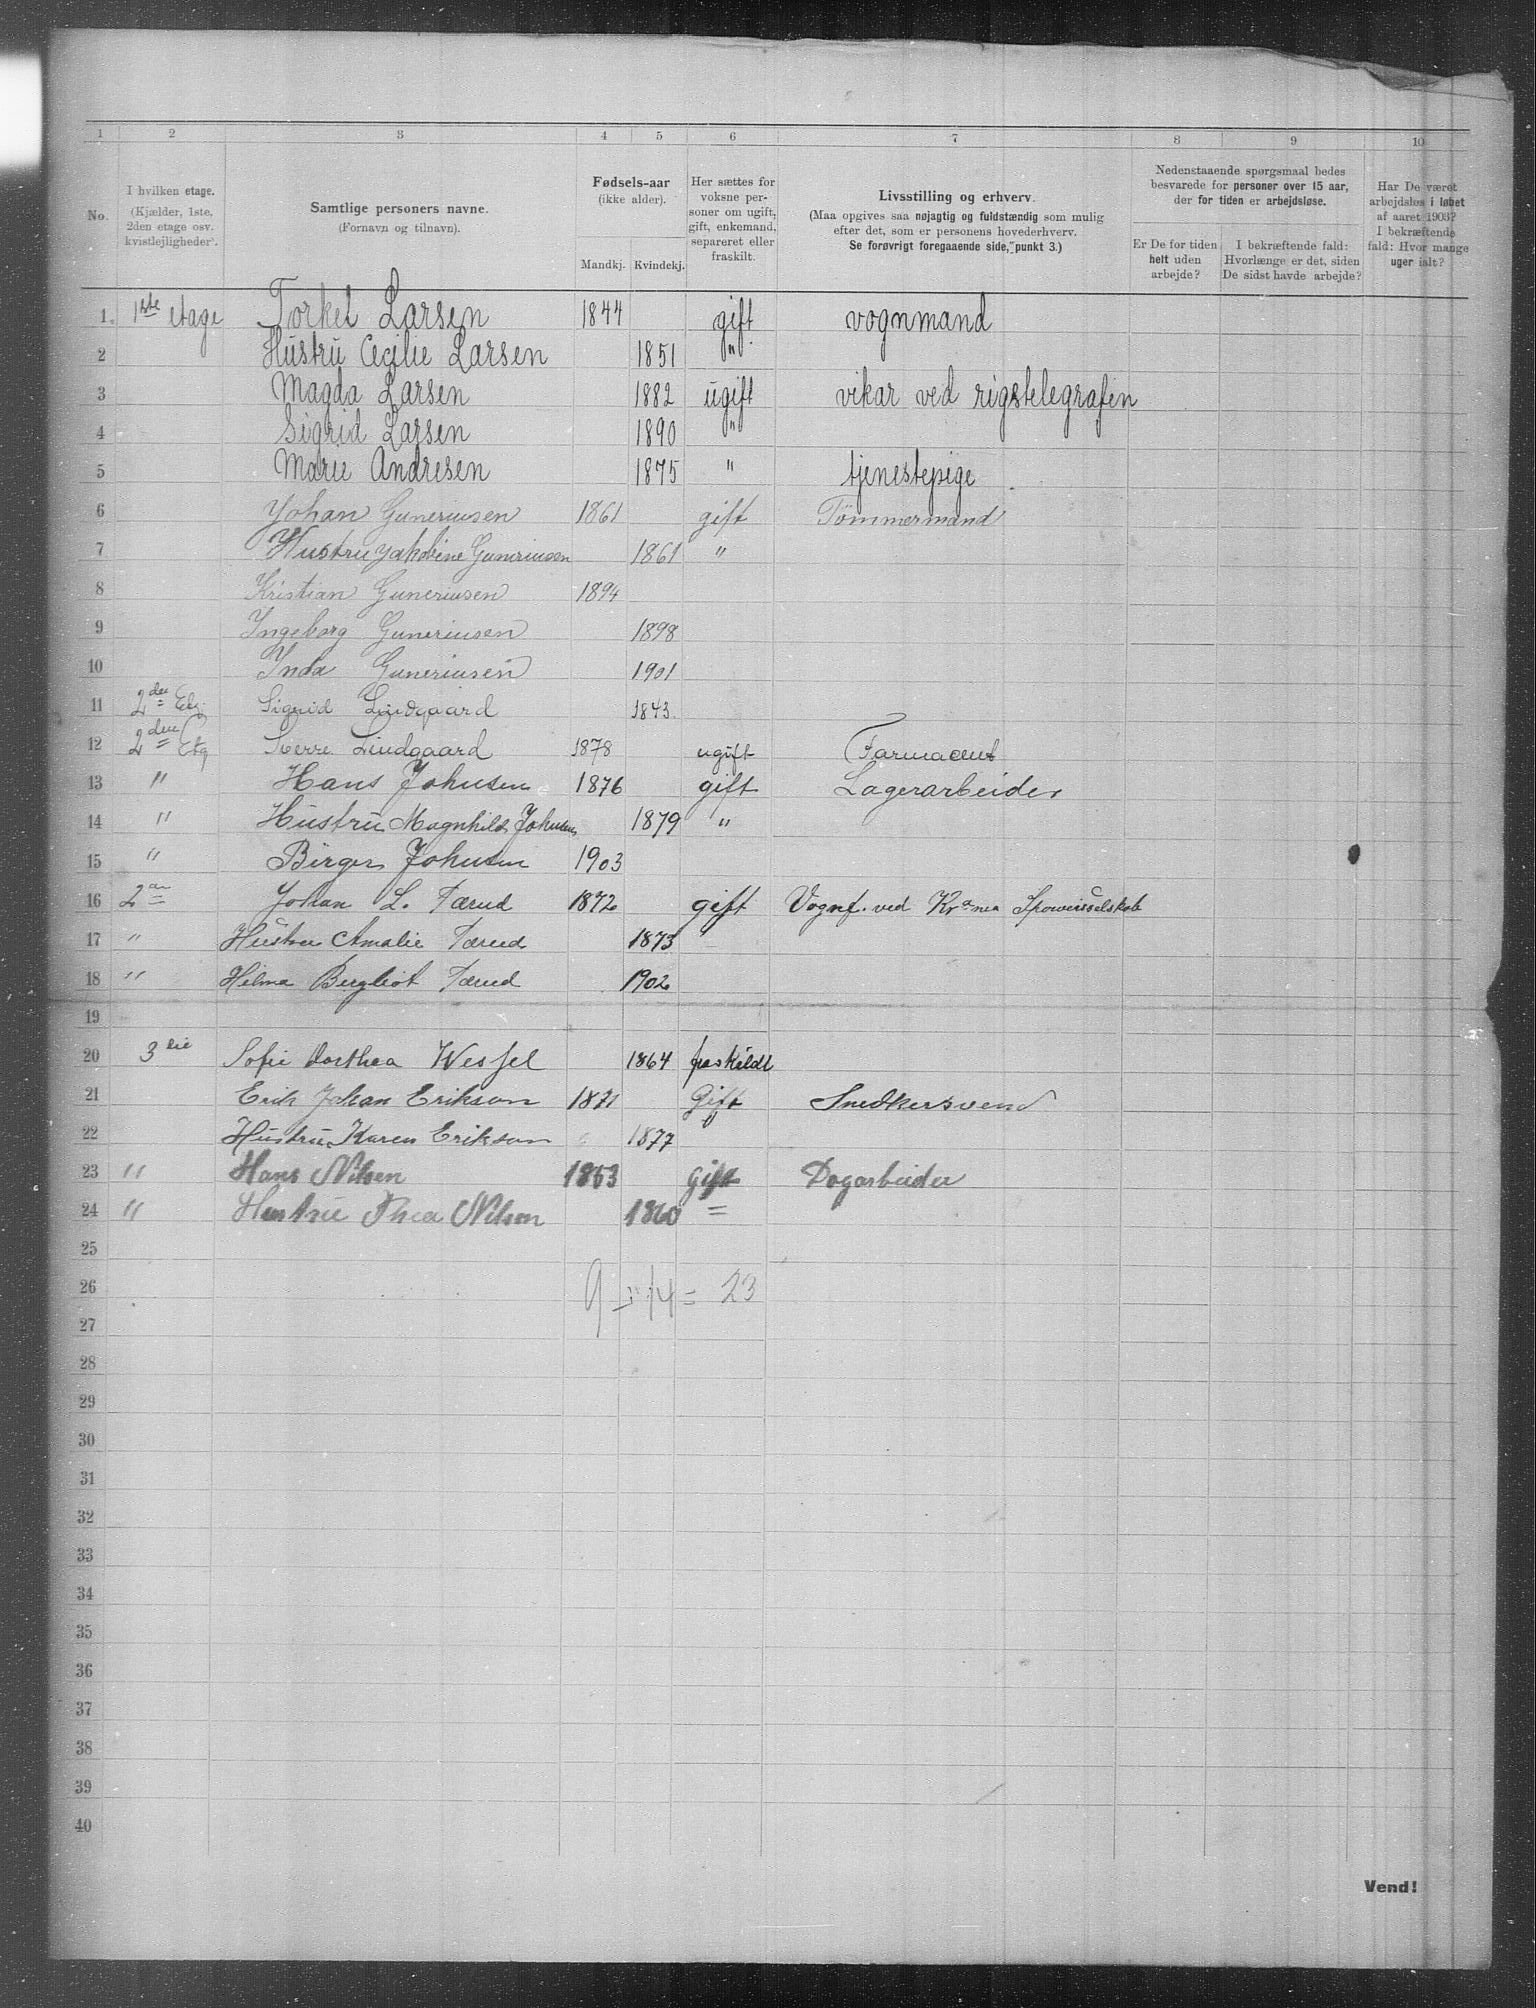 1 2 3 4 5 6 7 8 9 10
No.
I hvilken etage.
(Kjælder, 1ste,
2den etage osv.
kvistlejligheder).
Samtlige personers navne.
(Fornavn og tilnavn).
Fødsels-aar
(ikke alder).
Mandkj. Kvindekj.
Her sættes for
voksne per-
soner om ugift,
gift, enkemand,
separeret eller
fraskilt.
Livsstilling og erhverv.
(Maa opgives saa nøjagtig og fuldstændig som mulig
efter det, som er personens hovederhverv.
Se forøvrigt foregaaende side, punkt 3.)
Nedenstaaende spørgsmaal bedes
besvarede for personer over 15 aar,
der for tiden er arbejdsløse.
Er De for tiden
helt uden
arbejde?
I bekræftende fald:
Hvorlænge er det, siden
De sidst havde arbejde?
Har De været
arbejdsløs i løbet
af aaret 1903?
I bekræftende
fald: Hvor mange
uger ialt?
1. 1ste etage Torkel Larsen 1844 gift vognmand
2 Hustru Cecilie Larsen 1851 "
3 Magda Larsen 1882 ugift vikar ved rigstelegrafen
4 Sigrid Larsen 1890 "
5 Marie Andresen 1875 " tjenestepige
6 Johan Guneriusen 1861 gift Tömmermand
7 Hustru Jakobine Guneriusen 1861 "
8 Kristian Guneriusen 1894
9 Ingeborg Guneriusen 1898
10 Inda Guneriusen 1901
11 2den Etg. Sigrid Lindgaard 1843
12 2den Etg Sverre Lindgaard 1878 ugift Farmaceut
13 " Hans Johnsen 1876 gift Lagerarbeider
14 " Hustru Magnhild Johnsen 1879 "
15 " Birger Johnsen 1903
16 2an Johan L. Tærud 1872 gift Vognf. ved Kr.a nea Sporveisselskab
17 " Hustru Amalie Tærud 1873
18 " Hilma Bergliot Tærud 1902
19
20 3die Sofie Dorthea Wessel 1864 fraskildt
21 Erik Johan Erikson 1871 Gift Snedkersvend
22 Hustru Karen Erikson 1877 "
23 " Hans Nilsen 1853 gift Dagarbeider
24 " Hustru Thea Nilsen 1860 =
25
26 9 - 14 = 23
27
28
29
30
31
32
33
34
35
36
37
38
39
40
Vend!